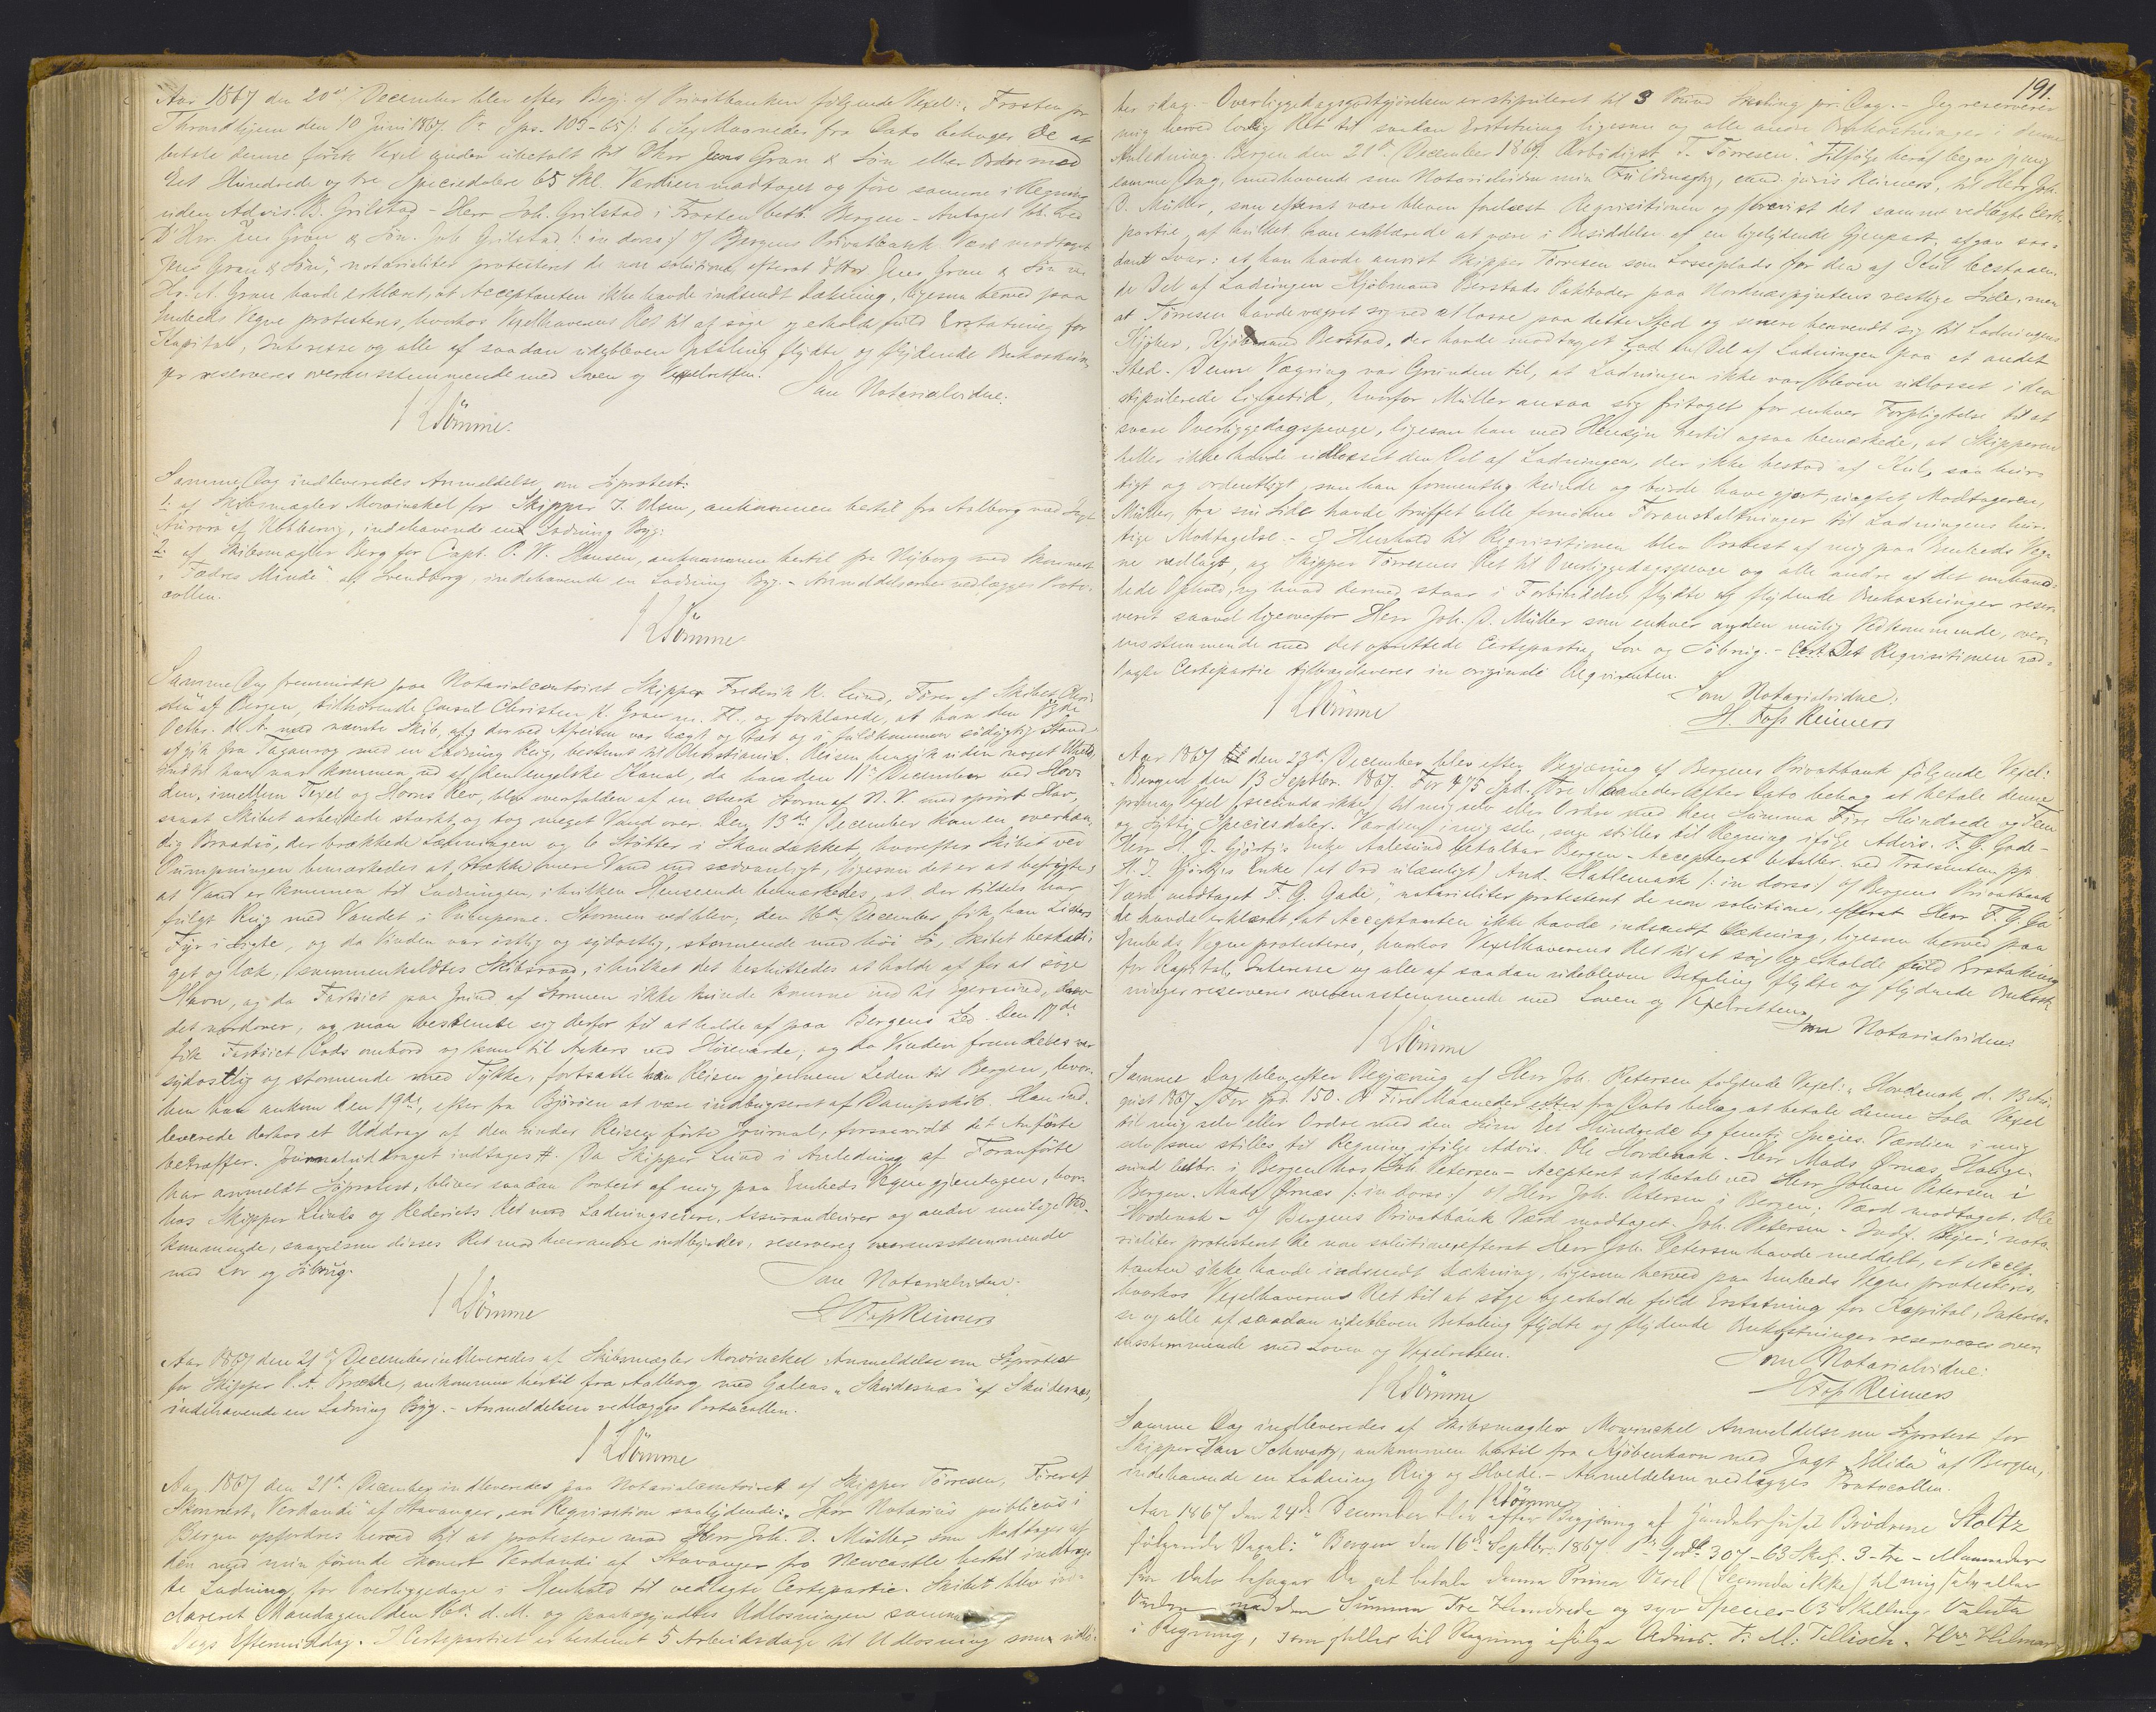 Aar 1867 den 20de December blev efter Begj. af Privatbanken følgende Vexel: "Frosten pr
Throndhjem den 10 Juni 1867. Pr Sps. 103-65/: 6 Sex Maaneder fra Dato behager De at
betale denne første Vexel anden ubetalt til DHrr Jens Gran & Søn eller Ordre med
Et Hundrede og tre Speciedalere 65 Skl. Værdien modtaget og føre samme i Regning
uden Advis. B. Grilstad - Herr Joh. Grilstad i Frosten betb. Bergen - Antaget bb. hed
D'Hrr. Jens Gran & Søn. Joh. Grilstad /: in dorso :/ Til Bergens Privatbank. Værd modtaget
Jens Gran & Søn", notarialiter protesteret de non solutione, efterat DHrr Jens Gran & Søn ved
Hr. A. Gran havde erklæret, at Acceptanten ikke havde indsendt Dækning, ligesom herved paa
Embeds Vegne protesteres, hvorhos Vexelhaverens Ret til at søge og erholde fuld Erstatning for
Kapital, Interesse og alle af saadan udebleven Betaling flydte og flydende Omkostnin-
ger reserveres overensstemmende med Loven og Vexelretten.
Som Notarialvidne:
K Sömme.
Samme Dag indleveredes Anmeldelse om Söprotest:
1. af Skibsmægler Mowinckel for Skipper J. Olsen, ankommen hertil fra Aalborg med Jagt
"Aurora" af Kobbervig, indehavende en Ladning Byg.
2. af Skibsmægler Berg for Capt. P. W. Hansen, ankommen hertil fra Nyborg med Skonnert
"Fædres Minde" af Svendborg, indehavende en Ladning Byg. - Anmeldelserne vedlægges Proto-
collen.
K Sömme
Samme Dag fremmødte paa Notarialcontoiret Skipper Frederik K. Lund, Fører af Skibet "Chri
sten" af Bergen, tilhørende Consul Christen K. Gran m. Fl., og forklarede, at han den
Octbr. d. A. med nævnte Skib, der ved Afreisen var tægt og tæt og i fuldkommen sødygtig Stand
afgik fra Taganrog med en Ladning Rug, bestemt til Christiania. Reisen foregik uden noget Uheld,
indtil han var kommen ud af den engelske Kanal, da han den 11te December ved Hov-
den, imellem Texel og Horns Rev, blev overfalden af en stærk Storm af N. V. med oprørt Hav,
samt Skibet arbeidede stærkt og tog meget Vand over. Den 13de December kom en overhæn-
dig Braadsø, der brækkede Lædningen og 6 Støtter i Skandækket, hvorefter Skibet ved
Pumpningen bemærkedes at trække mere Vand end sædvanligt, ligesom det er at befrygte,
at Vand er kommen til Ladningen, i hvilken Henseende bemærkedes, at der tildels har
fulgt Rug med Vandet i Pumperne. Stormen vedblev; den 16de December fik han Listers
Fyr i Sigte, og da Vinden var østlig og sydostlig, stormende med høi Sø, Skibet beskadi-
get og læk, sammenkaldtes Skibsraad, i hvilket det besluttedes at holde af for at søge
Havn, og da Fartøiet paa Grund af Stormen ikke kunde komme ind til Egersund, drev
det nordover, og man bestemte sig derfor til at holde af paa Bergens Led. Den 17de
fik Fartøiet Lods ombord og kom til Ankers ved Høievarde; og da Vinden fremdeles var
sydostlig og stormende med Tykke, fortsatte han Reisen gjennem Leden til Bergen, hvor-
hen han ankom den 19de, efter fra Bjørøen at være indbugseret af Dampskib. Han ind-
leverede derhos et Uddrag af den under Reisen førte Journal, forsaavidt det Anførte
betræffer. Journaluddraget indtages #. Da Skipper Lund i Anledning af Foranførte
har anmeldt Søprotest, bliver saadan Protest af mig paa Embeds Vegne gjentagen, hvor-
hos Skipper Lunds og Rederiets Ret mod Ladningseiere, Assurandeurer og andre mulige Ved-
kommende, saavelsom disses Ret mod hverandre indbyrdes, reserveres overensstemmende
med Lov og Söbrug.
Som Notarialvidne:
K Sömme
H Fass Reimers
Aar 1867 den 21de December indleveredes af Skibsmægler Mowinckel Anmeldelse om Söprotest
for Skipper P. A. Brække, ankommen hertil fra Aalborg med Galeas "Skudesnæs" af Skudesnæs,
indehavende en Ladning Byg. - Anmeldelsen vedlægges Protocollen.
K Sömme
Aar 1867 den 21de December indleveredes paa Notarialcontoiret af Skipper Tørresen, Fører af
Skonnert "Verdandi" af Stavanger, en Requisition saalydende: "Herr Notarius publicus i
Bergen opfordres herved til at protestere mod Herr Joh. D. Müller som Modtager af
den med min førende Skonert Verdandi af Stavanger fra Newcastle hertil indbrag-
te Ladning, for Overliggedage i Henhold til vedlagte Certepartie. Skibet blev ind-
clareret Mandagen den 16de d. M. og paabegyndtes Udlosningen samme
Dags Eftermiddag. I Certepartiet er bestemt 5 Arbeidsdage til Udlosning som udlø-
191.
ber idag. - Overliggedagsgodtgjørelsen er stipuleret til 3 Pund Sterling pr. Dag. - Jeg reserverer
mig herved lovlig Ret til saadan Erstatning ligesom og alle andre Omkostninger i denne
Anledning. Bergen den 21de December 1867. Ærbødigst T. Tørresen." Ifølge heraf begav jeg mig
samme Dag, medhavende som Notarialvidne min Fuldmægtig, cand. juris Reimers, til Herr Joh.
D. Müller, som efterat være bleven forelæst Requisitionen og forevist det samme vedlagte Certe-
partie, af hvilket han erklærede at være i Besiddelse af en ligelydende Gjenpart, afgav saa-
dant Svar: at han havde anvist Skipper Tørresen som Losseplads for den af Kul bestaaen-
de Del af Ladningen Kjøbmand Berstads Pakboder paa Nordnæspyntens vestlige Side, men
at Tørresen havde vægret sig ved at losse paa dette Sted og senere henvendt sig til Ladningens
Kjøber, Kjøbmand Berstad, der havde modtaget en Del af Ladningen paa et andet
Sted. - Denne Vægring var Grunden til, at Ladningen ikke var bleven udlosset i den
stipulerede Liggetid, hvorfor Müller ansaa sig fritaget for enhver Forpligtelse til at
svare Overliggedagspenge, ligesom han med Hensyn hertil ogsaa bemærkede, at Skipperen
heller ikke havde udlosset den Del af Ladningen, der ikke bestod af Kul, saa hur-
tigt og ordentligt, som han formentlig kunde og burde have gjort, uagtet Modtageren,
Müller, fra sin Side havde truffet alle fornødne Foranstaltninger til Ladningens hur-
tige Modtagelse. - I Henhold til Requisitionen blev Protest af mig paa Embeds Veg-
ne nedlagt, og Skipper Tørresens Ret til Overliggedagspenge og alle andre af det omhand-
lede Ophold, og hvad dermed staar i Forbindelse, flydte og flydende Omkostninger reser-
veret saavel ligeoverfor Herr Joh. D. Müller som enhver anden mulig Vedkommende, over-
ensstemmende med det oprettede Certepartie, Lov og Söbrug. - Det Requisitionen ved-
lagte Certepartie tilbageleveres in originali Reqvirenten.
Som Notarialvidne:
K Sömme
H. Fass Reimers
Aar 1867 den 23de December blev efter Begjæring af Bergens Privatbank følgende Vexel:
"Bergen den 13 Septbr. 1867. For 475 Spd. Tre Maaneder efter Dato behag at betale denne
prima Vexel (secunda ikke) til mig selv eller Ordre med den Summa Fire Hundrede og Fem
og Sytti Speciesdaler. Værdien i mig selv, som stilles til Regning ifölge Advis. F. G. Gade -
Herr H. J. Gjörtz's Enke Aalesund betalbar Bergen - Accepteret betalbr. ved Trassenten pp.
H. J. Gjørtzes Enke (et Ord ulæseligt) And. Hatlemark /: in dorso :/ Til Bergens Privatbank
Værd modtaget F. G. Gade," notarialiter protesteret de non solutione, efterat Herr F. G. Ga
de havde erklærdt, at Acceptanten ikke havde indsendt Dækning, ligesom herved paa
Embeds Vegne protesteres, hvorhos Vexelhaverens Ret til at søge og erholde fuld Erstatning
for Kapital, Interesse og alle af saadan udebleven Betaling flydte og flydende Omkost-
ninger reserveres overensstemmende med Loven og Vexelretten.
Som Notarialvidne:
K Sömme
Samme Dag blev efter Begjæring af Herr Joh. Petersen følgende Vexel: "Hovdenak d. 13 Au-
gust 1867. For Spd. 150. Fire Maaneder fra Dato behag at betale denne Sola Vexel
til mig selv eller Ordre med den Sum Et Hundrede og femti Species. Værdien i mig
selv som stilles til Regning ifølge Advis. Ole Hovdenak. - Herr Mads Ørnæs, Hauge-
sund betbr. i Bergen hos Joh. Petersen - Accepteret at betale ved Herr Johan Petersen i
Bergen. Mads Ørnæs /: in dorso :/ til Herr Joh. Petersen i Bergen. Værd modtaget. Ole
Hovdenak - Til Bergens Privatbank Værd modtaget. Joh. Petersen - Beyer", nota-
rialiter protesteret de non solutione, efterat Herr Joh. Petersen havde meddelt, at Accep-
tanten ikke havde indsendt Dækning, ligesom herved paa Embeds Vegne protesteres,
hvorhos Vexelhaverens Ret til at søge og erholde fuld Erstatning for Kapital, Interes-
se og alle af saadan udebleven Betaling flydte og flydende Omkostninger reserveres over-
ensstemmende med Loven og Vexelretten.
Som Notarialvidne:
K Sömme
H Fass Reimers
Samme Dag indleveredes af Skibsmægler Mowinckel Anmeldelse om Söprotest for
Skipper Jan Schwartz, ankommen hertil fra Kjöbenhavn med Jagt "Alida" af Bergen,
indehavende en Ladning Rug og Hvede. - Anmeldelsen vedlægges Protocollen.
K Sömme
Aar 1867 den 24de December blev efter Begjæring af Handelshuset Brødrene Stoltz
følgende Vexel: "Bergen den 16de Septbr. 1867 Pr Spd 307 - 63 Skilg. 3 - tre - Maaneder
fra dato behager De at betale denne Prima Vexel (Secunda ikke) til mig selv eller
Ordre med den Summa Tre Hundrede og syv Species 63 Skilling. Valuta
i Regning, som stilles til Regning ifølge Advis. F. M. Tillisch. Hrr Hilmar